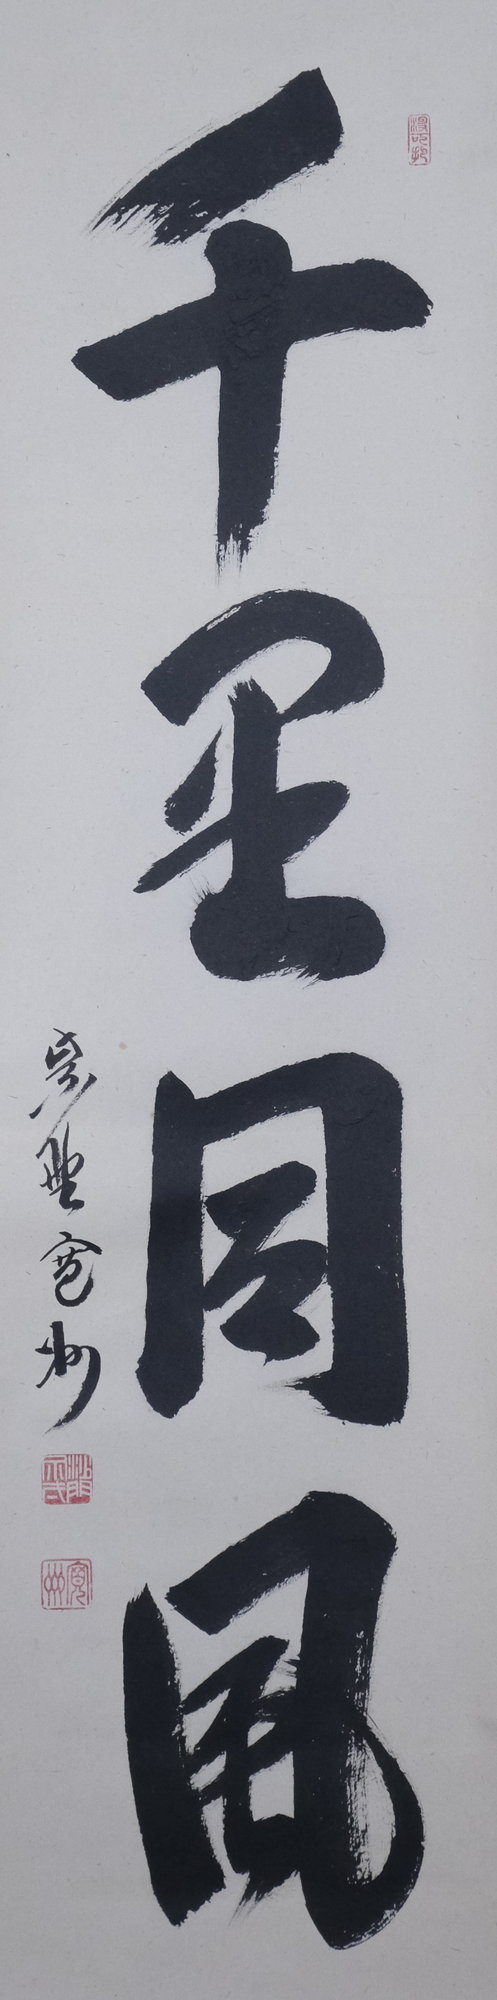 千里同風
紫野寛州